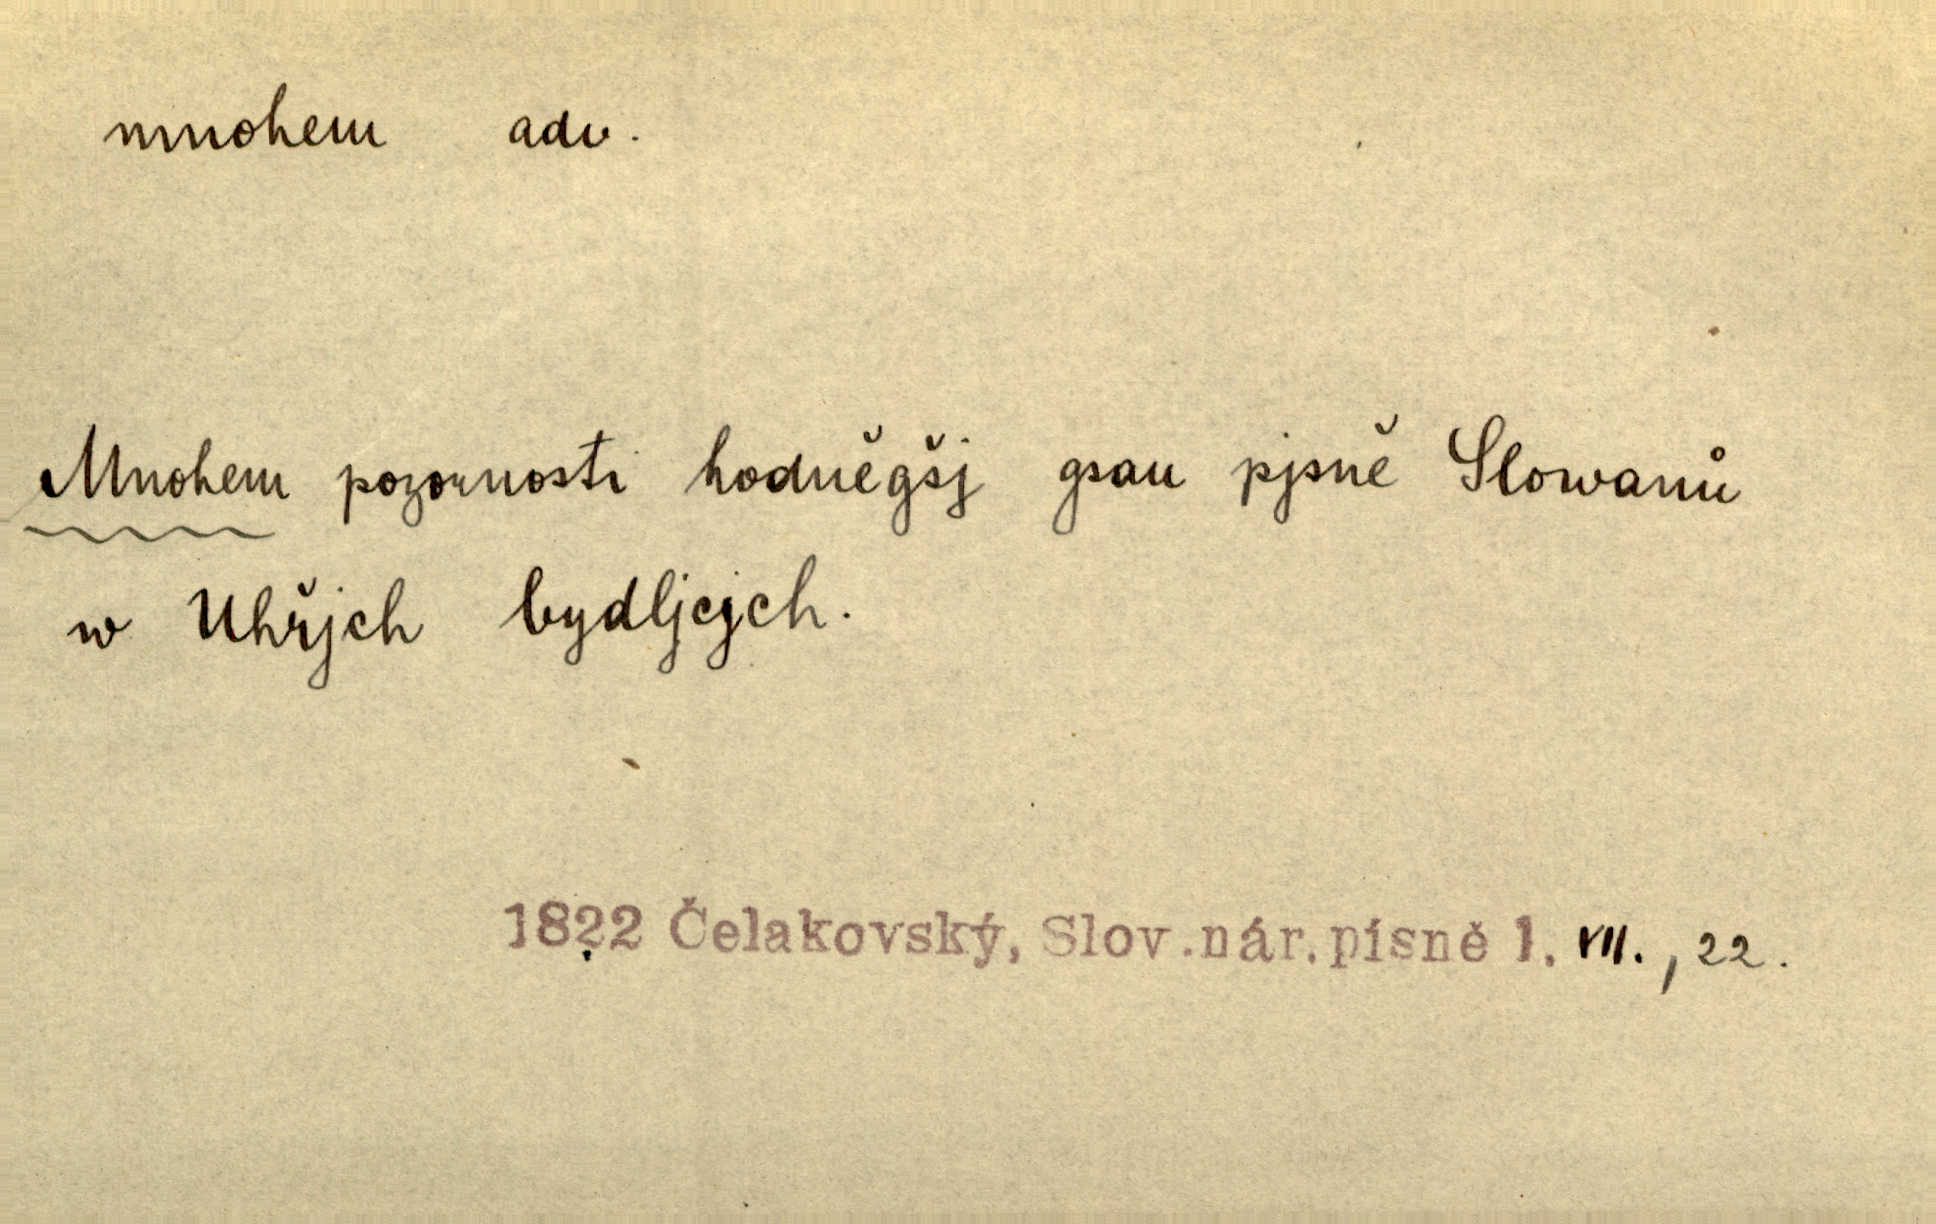 mnohem adv.
Mnohem pozornosti hodněgšj gsau pjsně Slowanů
w Uhřjch bydljcjch.
1822 Čelakovský, Slov.nár.písně 1. VII., 22.